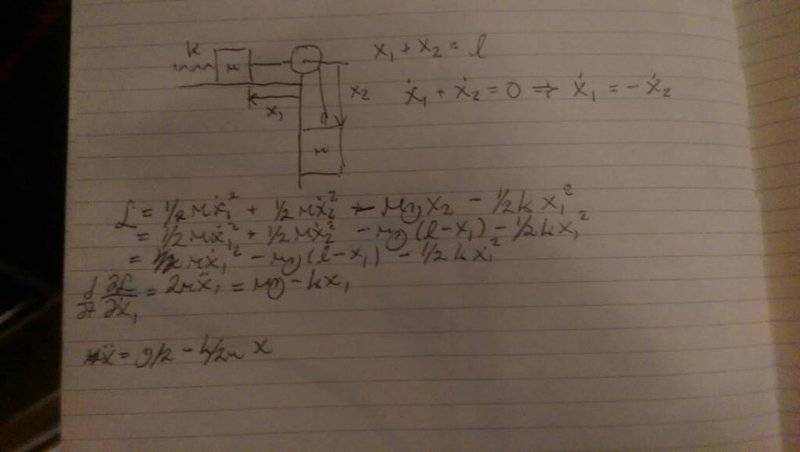 k
m
x₁ + x₂ = l
x₂
x₁
ẋ₁ + ẋ₂ = 0 ⇒ ẋ₁ = -ẋ₂
m
L = ½mẋ₁² + ½mẋ₂² - mgx₂ - ½kx₁²
= ½mẋ₁² + ½mẋ₂² - mg(l-x₁) - ½kx₁²
mẋ₁² - mg(l-x₁) - ½kx₁²
d/dt ∂L/∂ẋ₁ = 2mẍ₁ = mg - kx₁
ẍ = g/2 - k/2m x